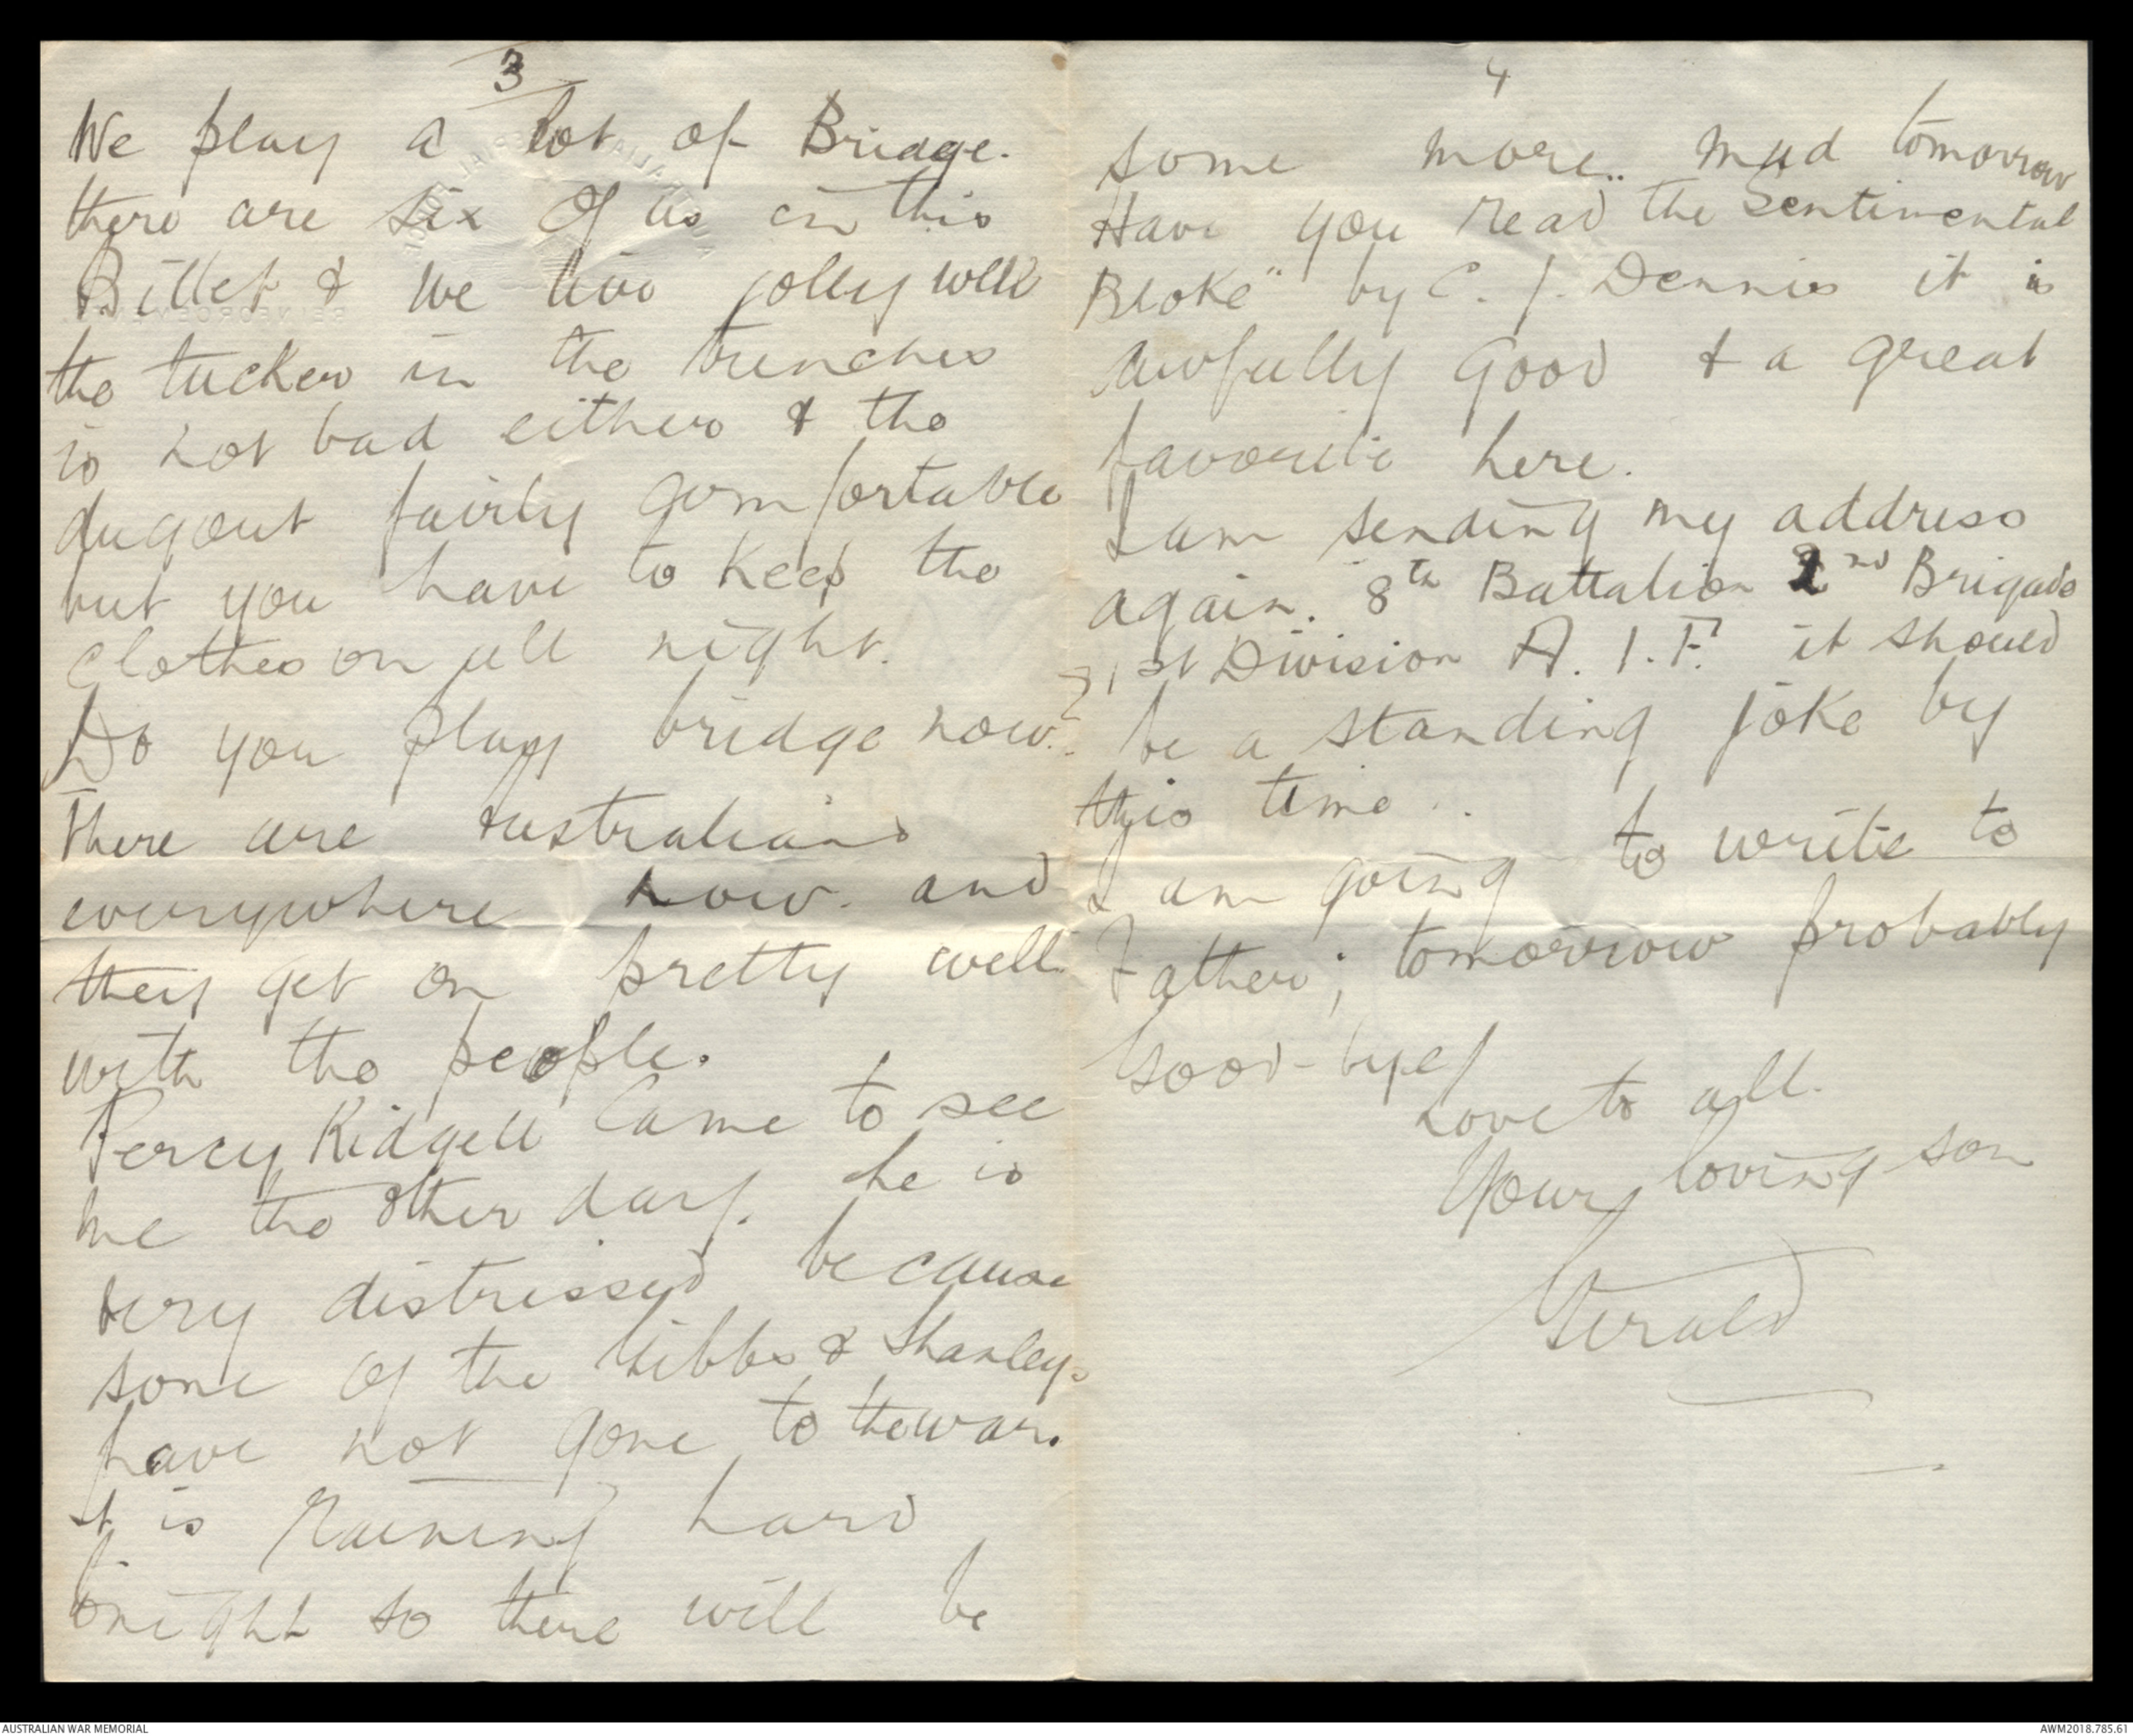 3
We play a lot of Bridge.
there are six of us in this
Billet & we live jolly well
the tucker in the trenches
is not bad either & the
dugout fairly comfortable
but you have to keep the
clothes on all night.
Do you play bridge now.
There are Australians
everywhere now. and
they get on pretty well
with the people.
Percy Ridgell came to see
me the other day. he is
very distressed because
some of the Gibbs & Shanleys
have not gone to the war.
It is raining hard
tonight so there will be
4
some more.. mud tomorrow
Have you read the Sentimental
Bloke" by C. J. Dennis it is
awfully good & a great
favorite here.
I am sending my address
again. 8th Battalion 2nd Brigade
1st Division A. I. F. it should
be a standing joke by
this time..
I am going to write to
Father; tomorrow probably
Good-bye
Love to all.
Your loving son
Gerald
AUSTRALIAN WAR MEMORIAL
AWM2018.785.61